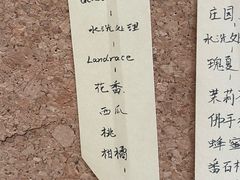 水洗处理
Landrace
花香
西瓜
桃
柑橘
庄园
水洗处
瑰夏
茉莉
佛手
蜂蜜
番石